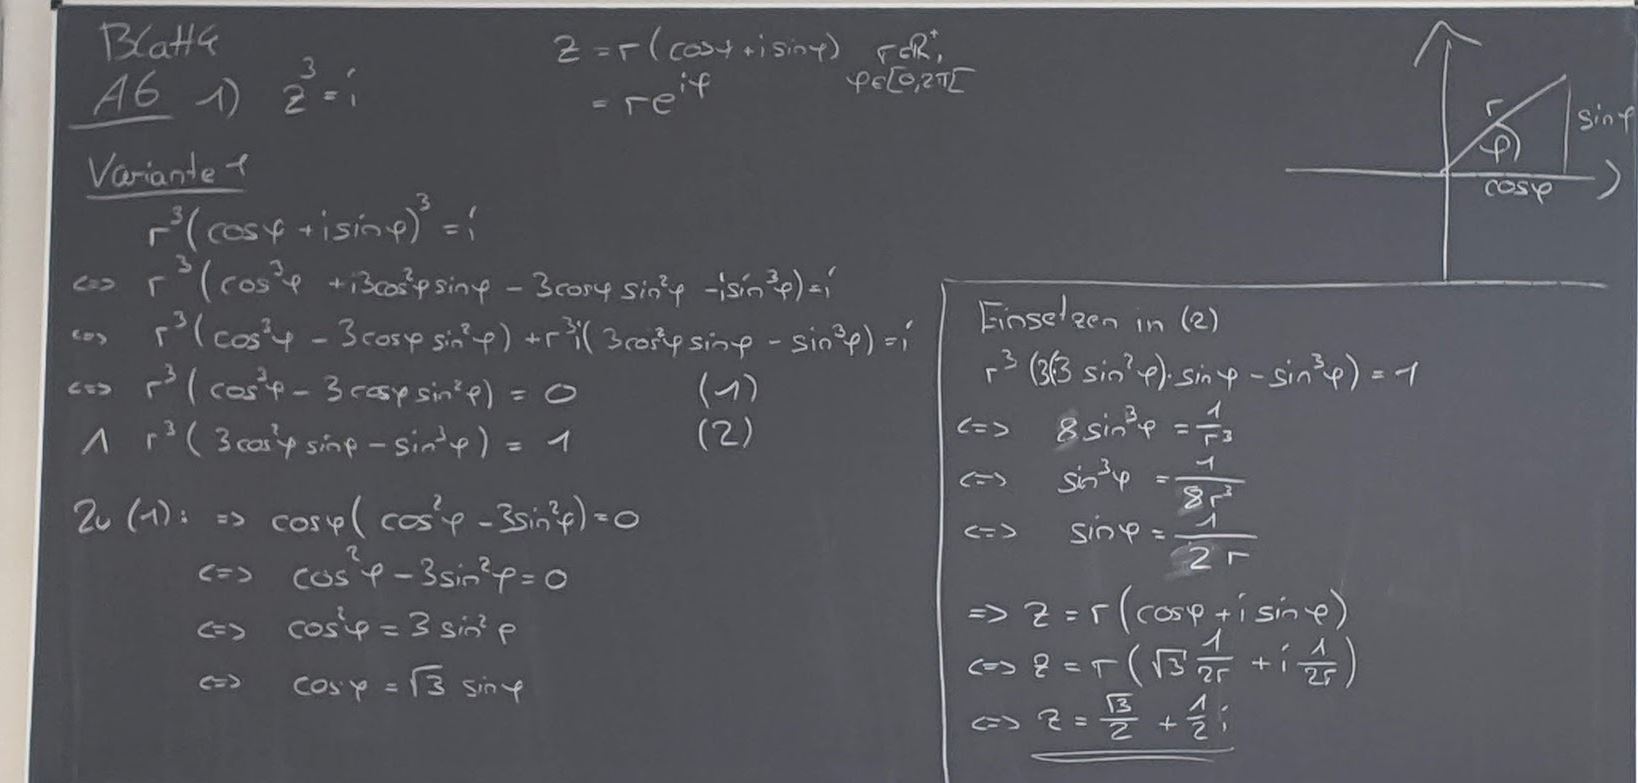 Blatt 4
A6 1) z³ = i
z = r(cosφ + i sinφ) r∈ℝ⁺,
φ∈[0,2π[
= re^{iφ}
r
φ
sinφ
cosφ
Variante 1
r³(cosφ + i sinφ)³ = i
<=> r³(cos³φ + i3cos²φ sinφ - 3cosφ sin²φ - i sin³φ) = i
<=> r³(cos³φ - 3cosφ sin²φ) + r³i(3cos²φ sinφ - sin³φ) = i
<=> r³(cos³φ - 3cosφ sin²φ) = 0 (1)
∧ r³(3cos²φ sinφ - sin³φ) = 1 (2)
Zu (1): => cosφ(cos²φ - 3sin²φ) = 0
<=> cos²φ - 3sin²φ = 0
<=> cos²φ = 3 sin²φ
<=> cosφ = √3 sinφ
Einsetzen in (2)
r³(3(3 sin²φ)·sinφ - sin³φ) = 1
<=> 8 sin³φ = 1/r³
<=> sin³φ = 1/8r³
<=> sinφ = 1/2r
=> z = r(cosφ + i sinφ)
<=> z = r(√3 1/2r + i 1/2r)
<=> z = √3/2 + 1/2 i